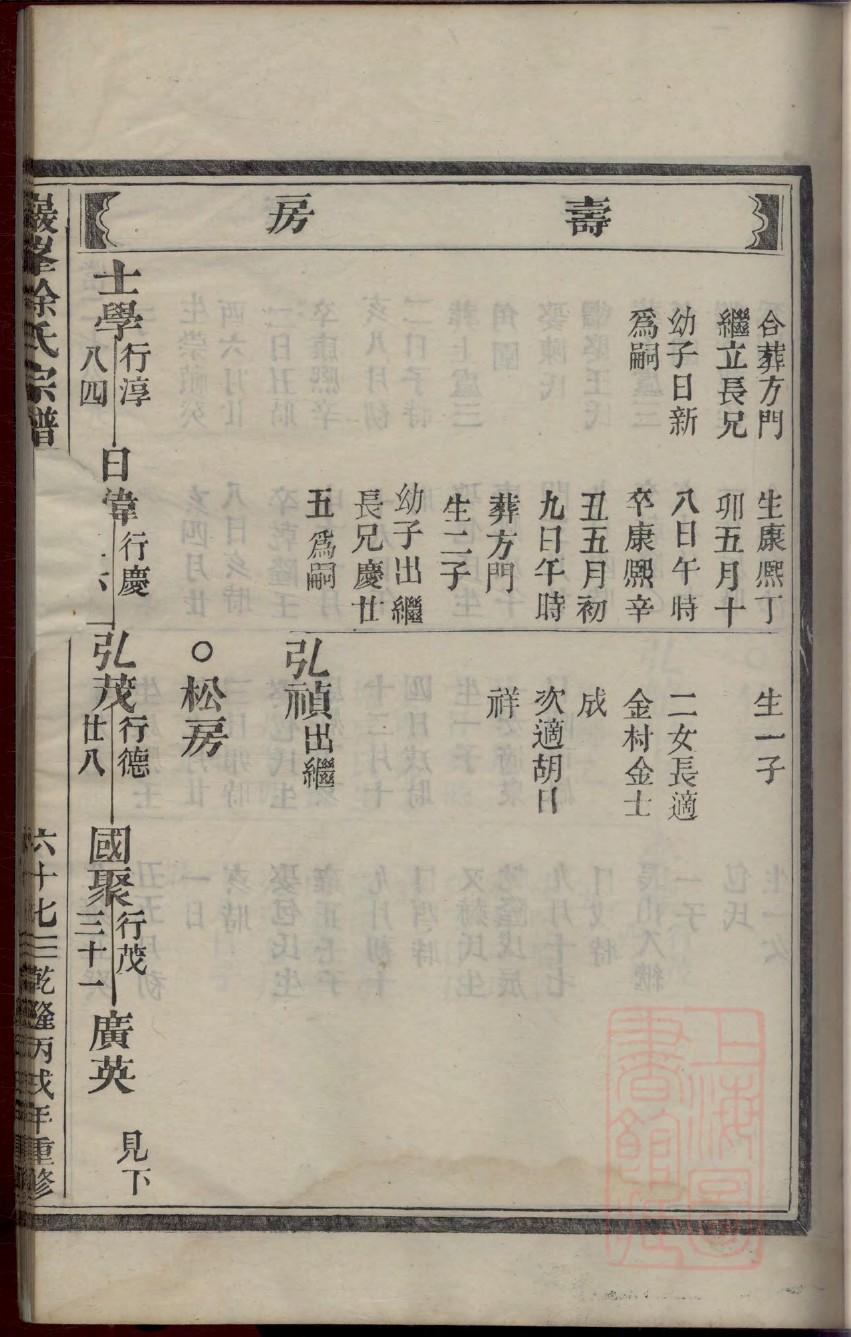 壽房
合葬方門
繼立長兄
幼子日新
爲嗣
生康熈丁
卯五月十
八日午時
卒康熈辛
丑五月初
九日午時
葬方門
生二子
幼子出繼
長兄慶廿
五爲嗣
生一子
二女長適
金村金士
成
次適胡日
祥
弘禎出繼
○松房
士學行淳八四
日偉行慶
弘茂行德廿八
國聚行茂三十一
廣英見下
巖峯徐氏宗譜
六十七
乾隆丙戌年重修
上海圖書館藏